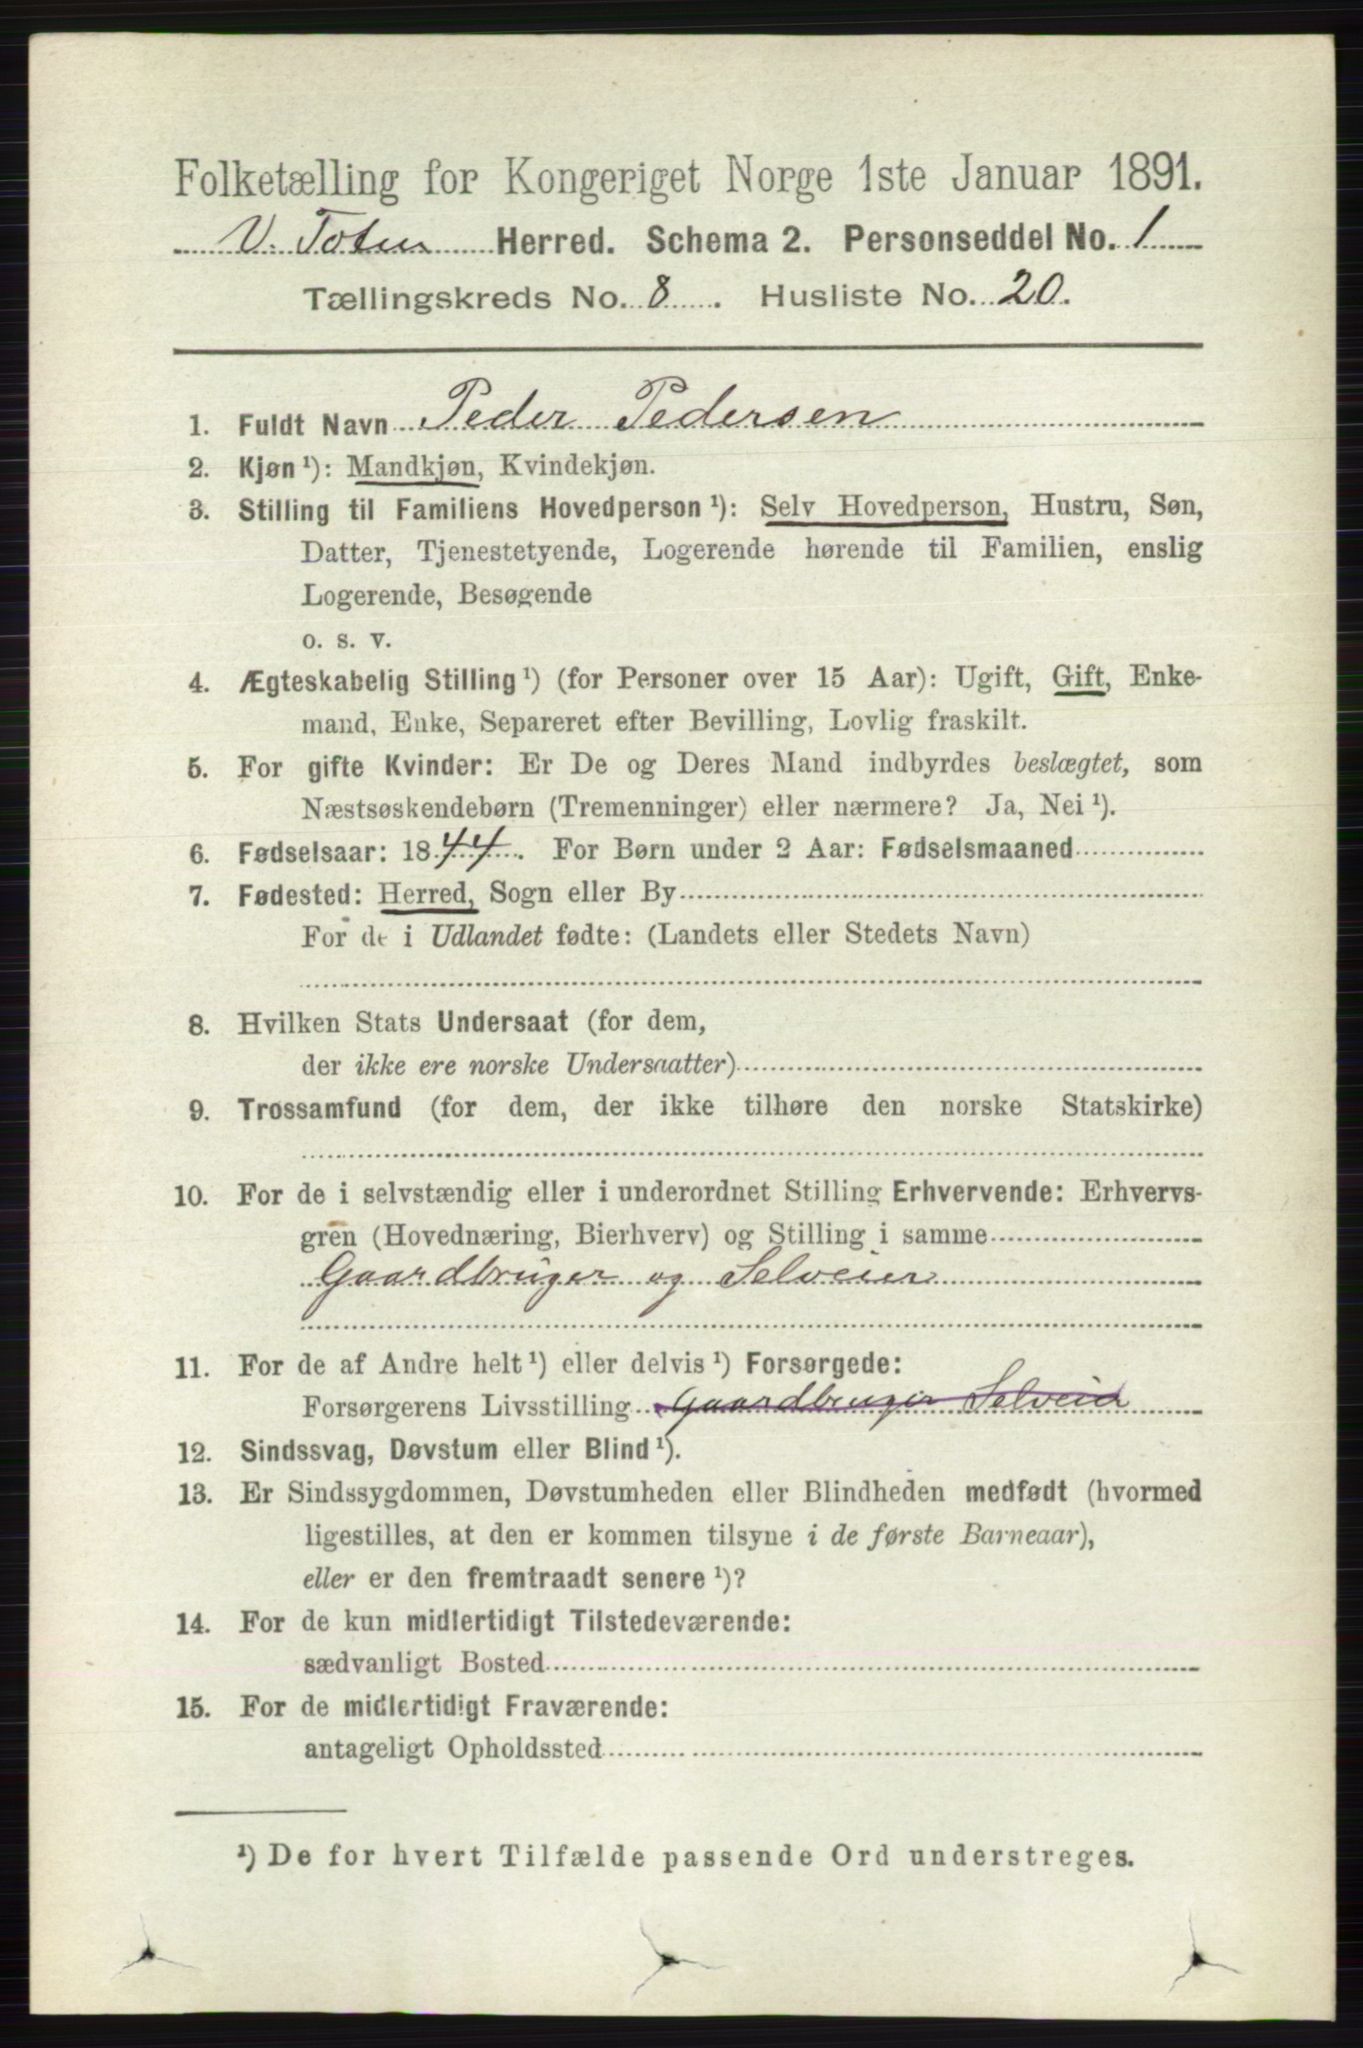 Folketælling for Kongeriget Norge 1ste Januar 1891.
V. Toten Herred. Schema 2. Personseddel No. 1
Tællingskreds No. 8. Husliste No. 20.
1. Fuldt Navn Peder Pedersen
2. Kjøn ¹): Mandkjøn, Kvindekjøn.
3. Stilling til Familiens Hovedperson ¹): Selv Hovedperson, Hustru, Søn,
Datter, Tjenestetyende, Logerende hørende til Familien, enslig
Logerende, Besøgende
o. s. v.
4. Ægteskabelig Stilling ¹) (for Personer over 15 Aar): Ugift, Gift, Enke-
mand, Enke, Separeret efter Bevilling, Lovlig fraskilt.
5. For gifte Kvinder: Er De og Deres Mand indbyrdes beslægtet, som
Næstsøskendebørn (Tremenninger) eller nærmere? Ja, Nei ¹).
6. Fødselsaar: 1844. For Børn under 2 Aar: Fødselsmaaned
7. Fødested: Herred, Sogn eller By
For de i Udlandet fødte: (Landets eller Stedets Navn)
8. Hvilken Stats Undersaat (for dem,
der ikke ere norske Undersaatter)
9. Trossamfund (for dem, der ikke tilhøre den norske Statskirke)
10. For de i selvstændig eller i underordnet Stilling Erhvervende: Erhvervs-
gren (Hovednæring, Bierhverv) og Stilling i samme
Gaardbruger og Selveier
11. For de af Andre helt ¹) eller delvis ¹) Forsørgede:
Forsørgerens Livsstilling Gaardbruger Selveier
12. Sindssvag, Døvstum eller Blind ¹).
13. Er Sindssygdommen, Døvstumheden eller Blindheden medfødt (hvormed
ligestilles, at den er kommen tilsyne i de første Barneaar),
eller er den fremtraadt senere ¹)?
14. For de kun midlertidigt Tilstedeværende:
sædvanligt Bosted
15. For de midlertidigt Fraværende:
antageligt Opholdssted
¹) De for hvert Tilfælde passende Ord understreges.